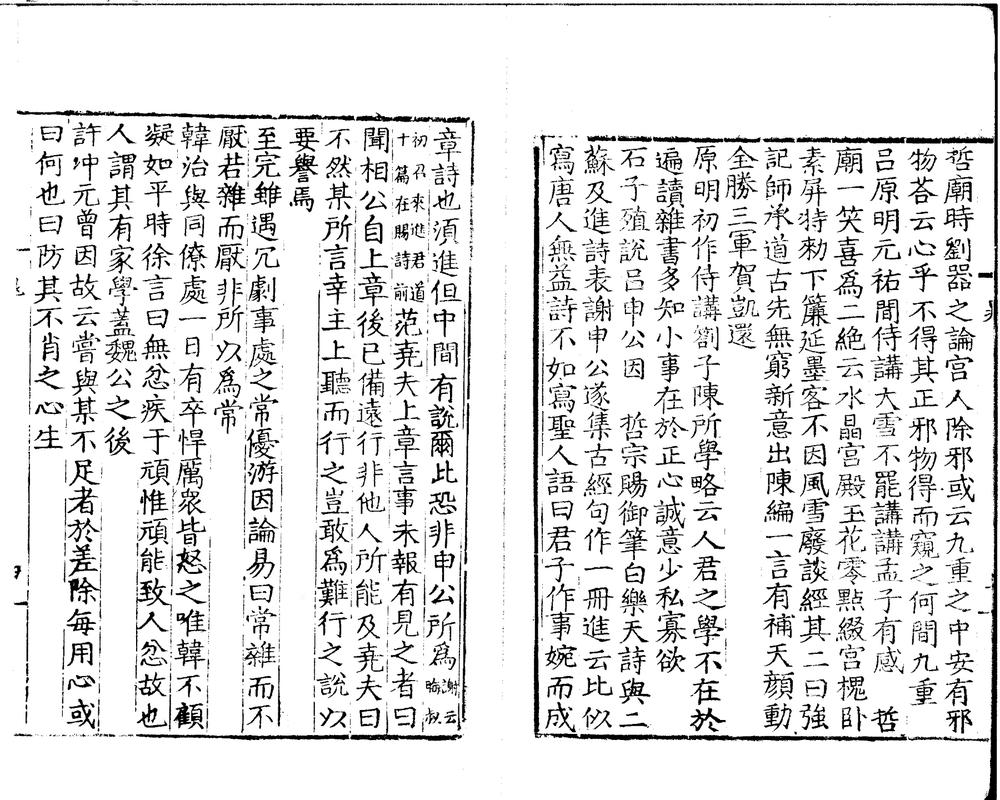 哲廟時劉器之論宮人除邪或云九重之中安有邪
物荅云心乎不得其正邪物得而窺之何間九重
呂原明元祐間侍講大雪不罷講講孟子有感 哲
廟一笑喜爲二絕云水晶宮殿玉花零點綴宮槐卧
素屏特勑下簾延墨客不因風雪廢談經其二曰強
記師承道古先無窮新意出陳編一言有補天顔動
全勝三軍賀凱還
原明初作侍講劄子陳所學略云人君之學不在於
遍讀雜書多知小事在於正心誠意少私寡欲
石子殖說呂申公因 哲宗賜御筆白樂天詩與二
蘇及進詩表謝申公遂集古經句作一冊進云比似
寫唐人無益詩不如寫聖人語曰君子作事婉而成
章詩也須進但中間有說爾比恐非申公所爲謝云晦叔
初召來進君道十篇在賜詩前范堯夫上章言事未報有見之者曰
聞相公自上章後已備遠行非他人所能及堯夫曰
不然某所言幸主上聽而行之豈敢爲難行之說以
要譽焉
至完雖遇冗劇事處之常優游因論易曰常雜而不
厭若雜而厭非所以爲常
韓治與同僚處一日有卒悍厲衆皆怒之唯韓不顧
凝如平時徐言曰無忿疾于頑惟頑能致人忿故也
人謂其有家學蓋魏公之後
許冲元曾因故云嘗與某不足者於差除每用心或
曰何也曰防其不肖之心生